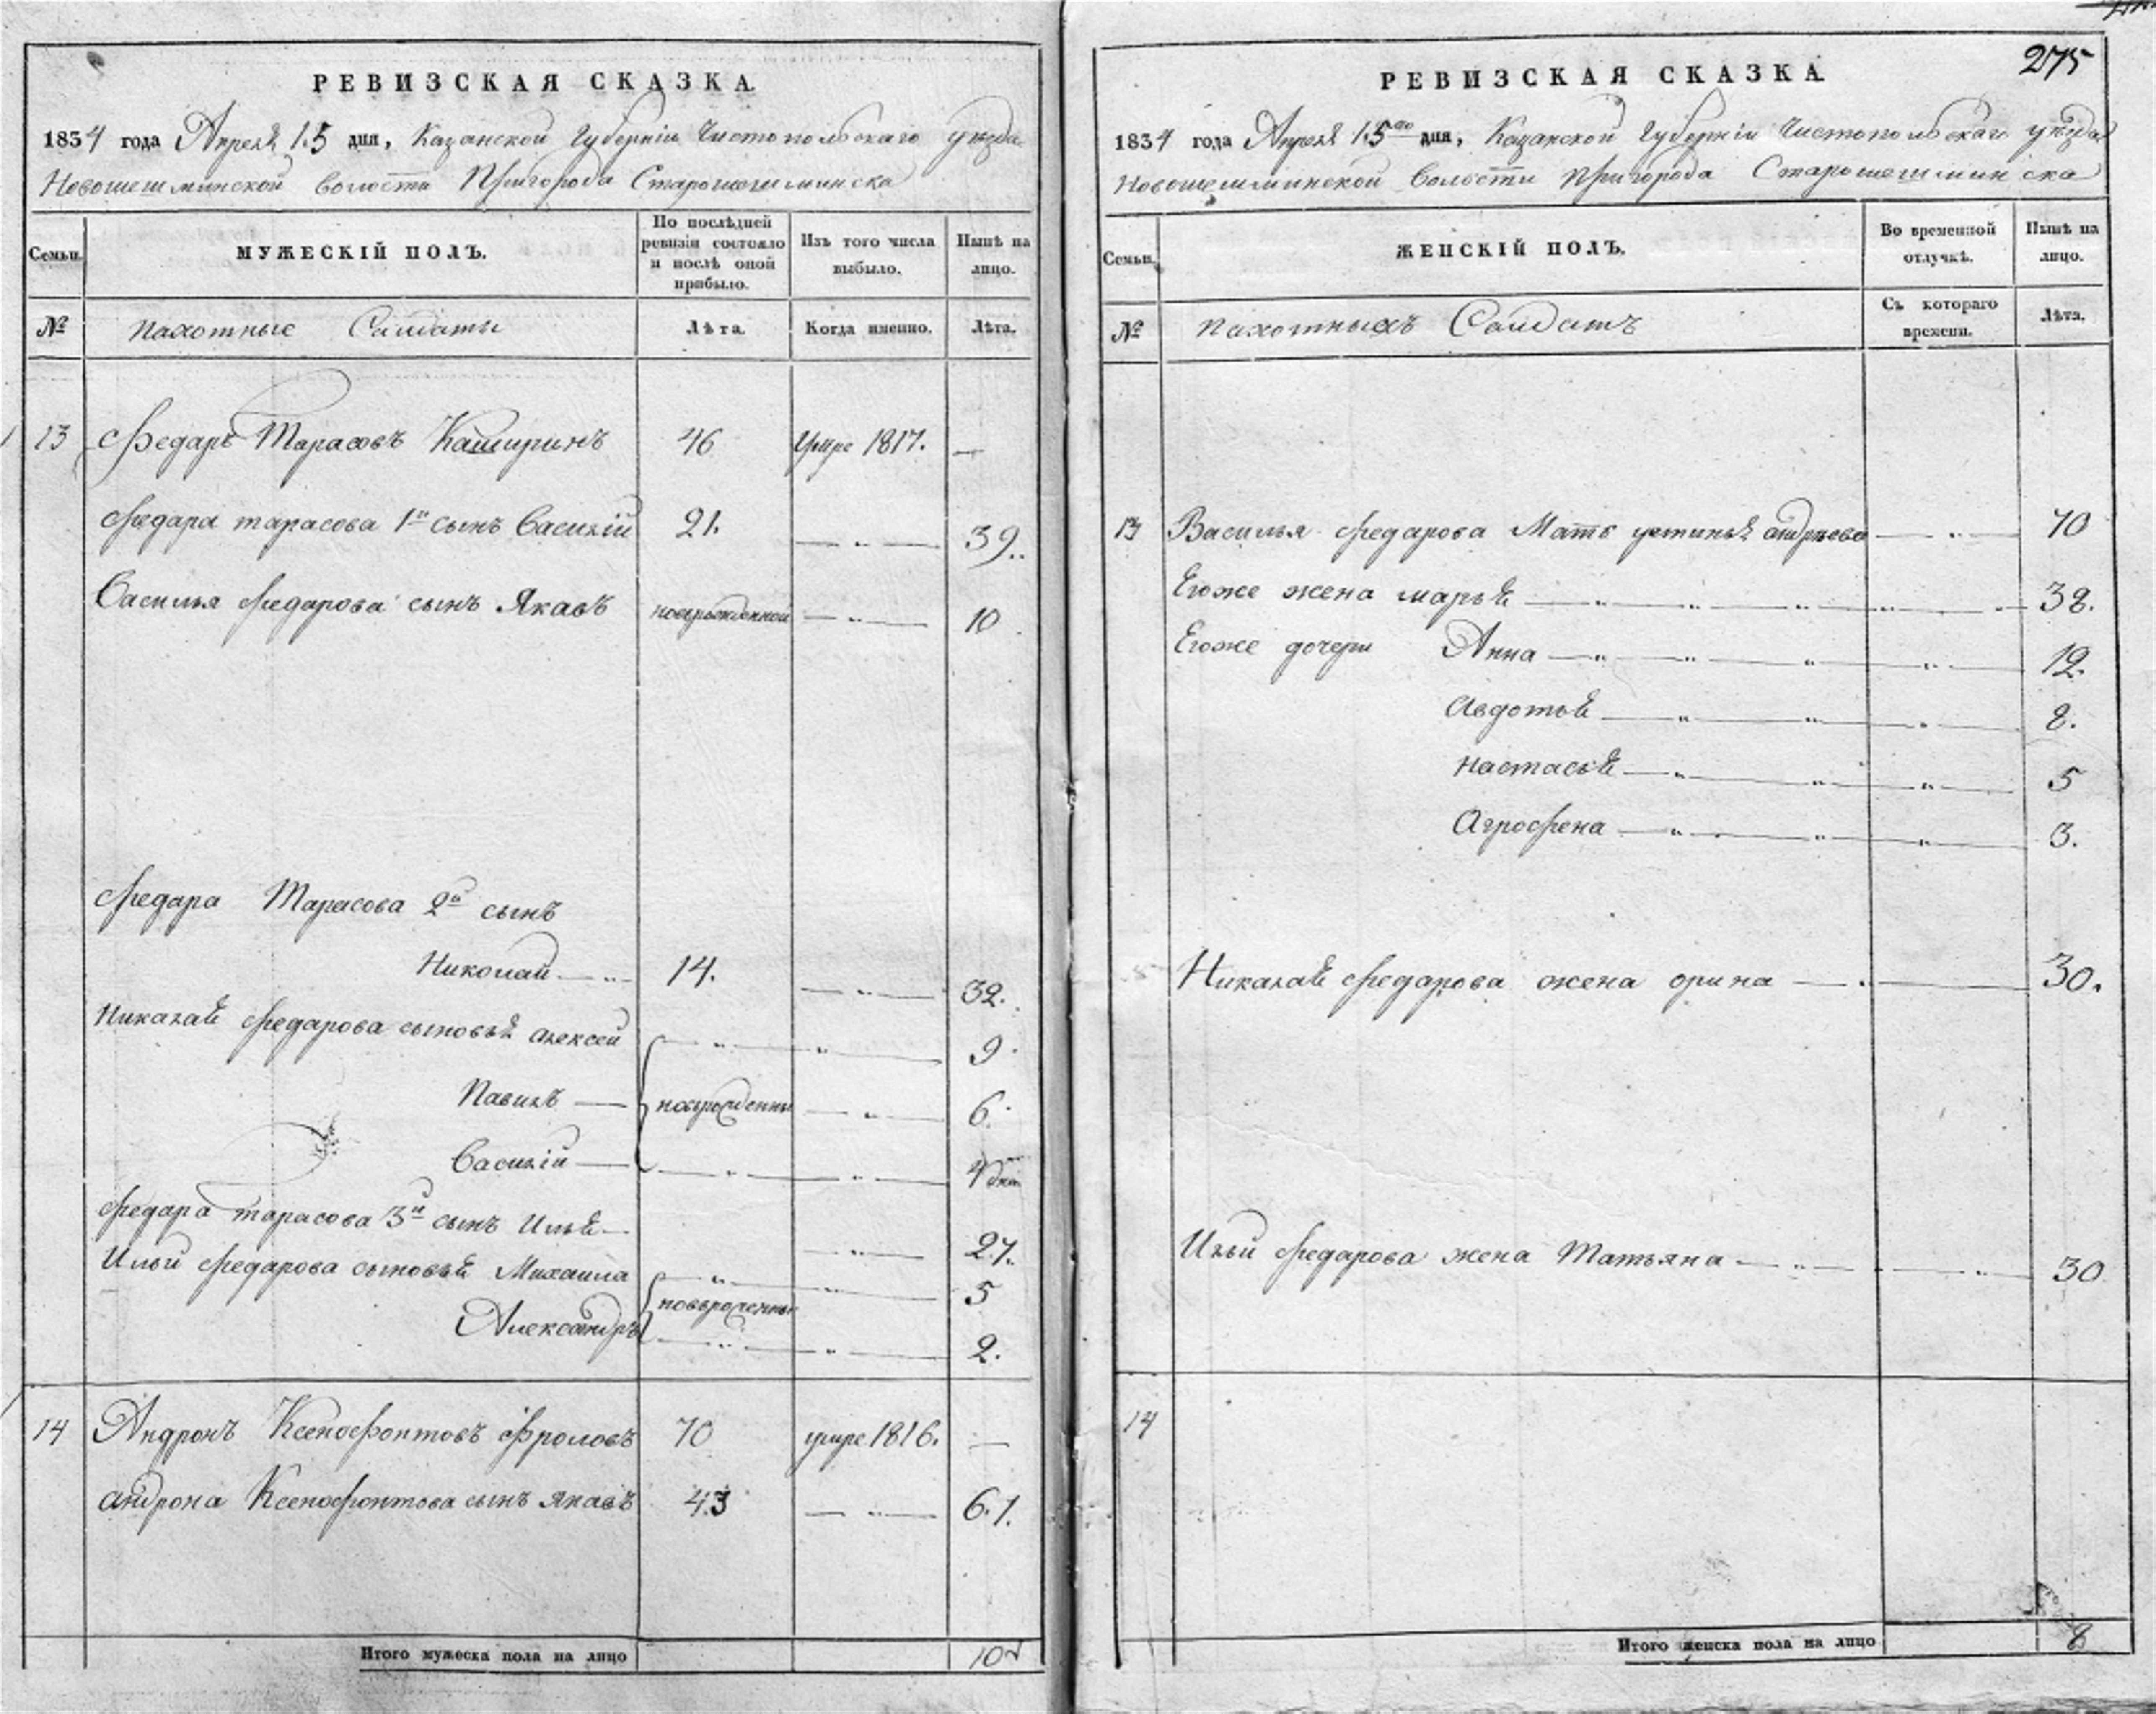 РЕВИЗСКАЯ СКАЗКА.
1834 года Апреля 15 дня, Казанской Губернiи Чистопольскаго уѣзда
Новошешминской волости Пригорода Старошешминска
Семьи.
МУЖЕСКIЙ ПОЛЪ.
По послѣдней ревизiи состояло и послѣ оной прибыло.
Изъ того числа выбыло.
Нынѣ на лицо.
№
пахотные Салдаты
Лѣта.
Когда именно.
Лѣта.
13 Федаръ Тарасовъ Каширинъ 46 Умре 1817. —
Федара тарасова 1й сынъ Василiй 21. — " — 39.
Василья Федарова сынъ Якавъ новорожденной — " — 10
Федара Тарасова 2й сынъ
Николай — 14. — " — 32.
Никалая Федарова сыновья алексей — " — 9
Павилъ — новорожденны — " — 6.
Василiй — " — " —
Федара тарасова 3й сынъ Илья — — " — 27.
Ильи Федарова сыновья Михаила — " — 5
новорожденны
Александръ — " — 2.
14 Андронъ Ксенофонтовъ Фроловъ 70 умре 1816. —
андрона Ксенофонтова сынъ Якавъ 43 — " — 61.
Итого мужеска пола на лицо 10
275
РЕВИЗСКАЯ СКАЗКА
1834 года Апреля 15го дня, Казанской Губернiи Чистопольскаго уѣзда
Новошешминской волости пригорода Старошешминска
Семьи.
ЖЕНСКIЙ ПОЛЪ.
Во временной отлучкѣ.
Нынѣ на лицо.
№
пахотныхъ Салдатъ
Съ котораго времени.
Лѣта.
13 Василья Федарова Мать устинья андреева — " — 70
Егоже жена марья — " — 38.
Егоже дочери Анна — " — 12.
Авдотья — " — 8.
настасья — " — 5
Аграфена — " — 3.
Никалая Федарова жена орина — 30.
Ильи Федарова жена Татьяна — " — 30
14
Итого женска пола на лицо 8